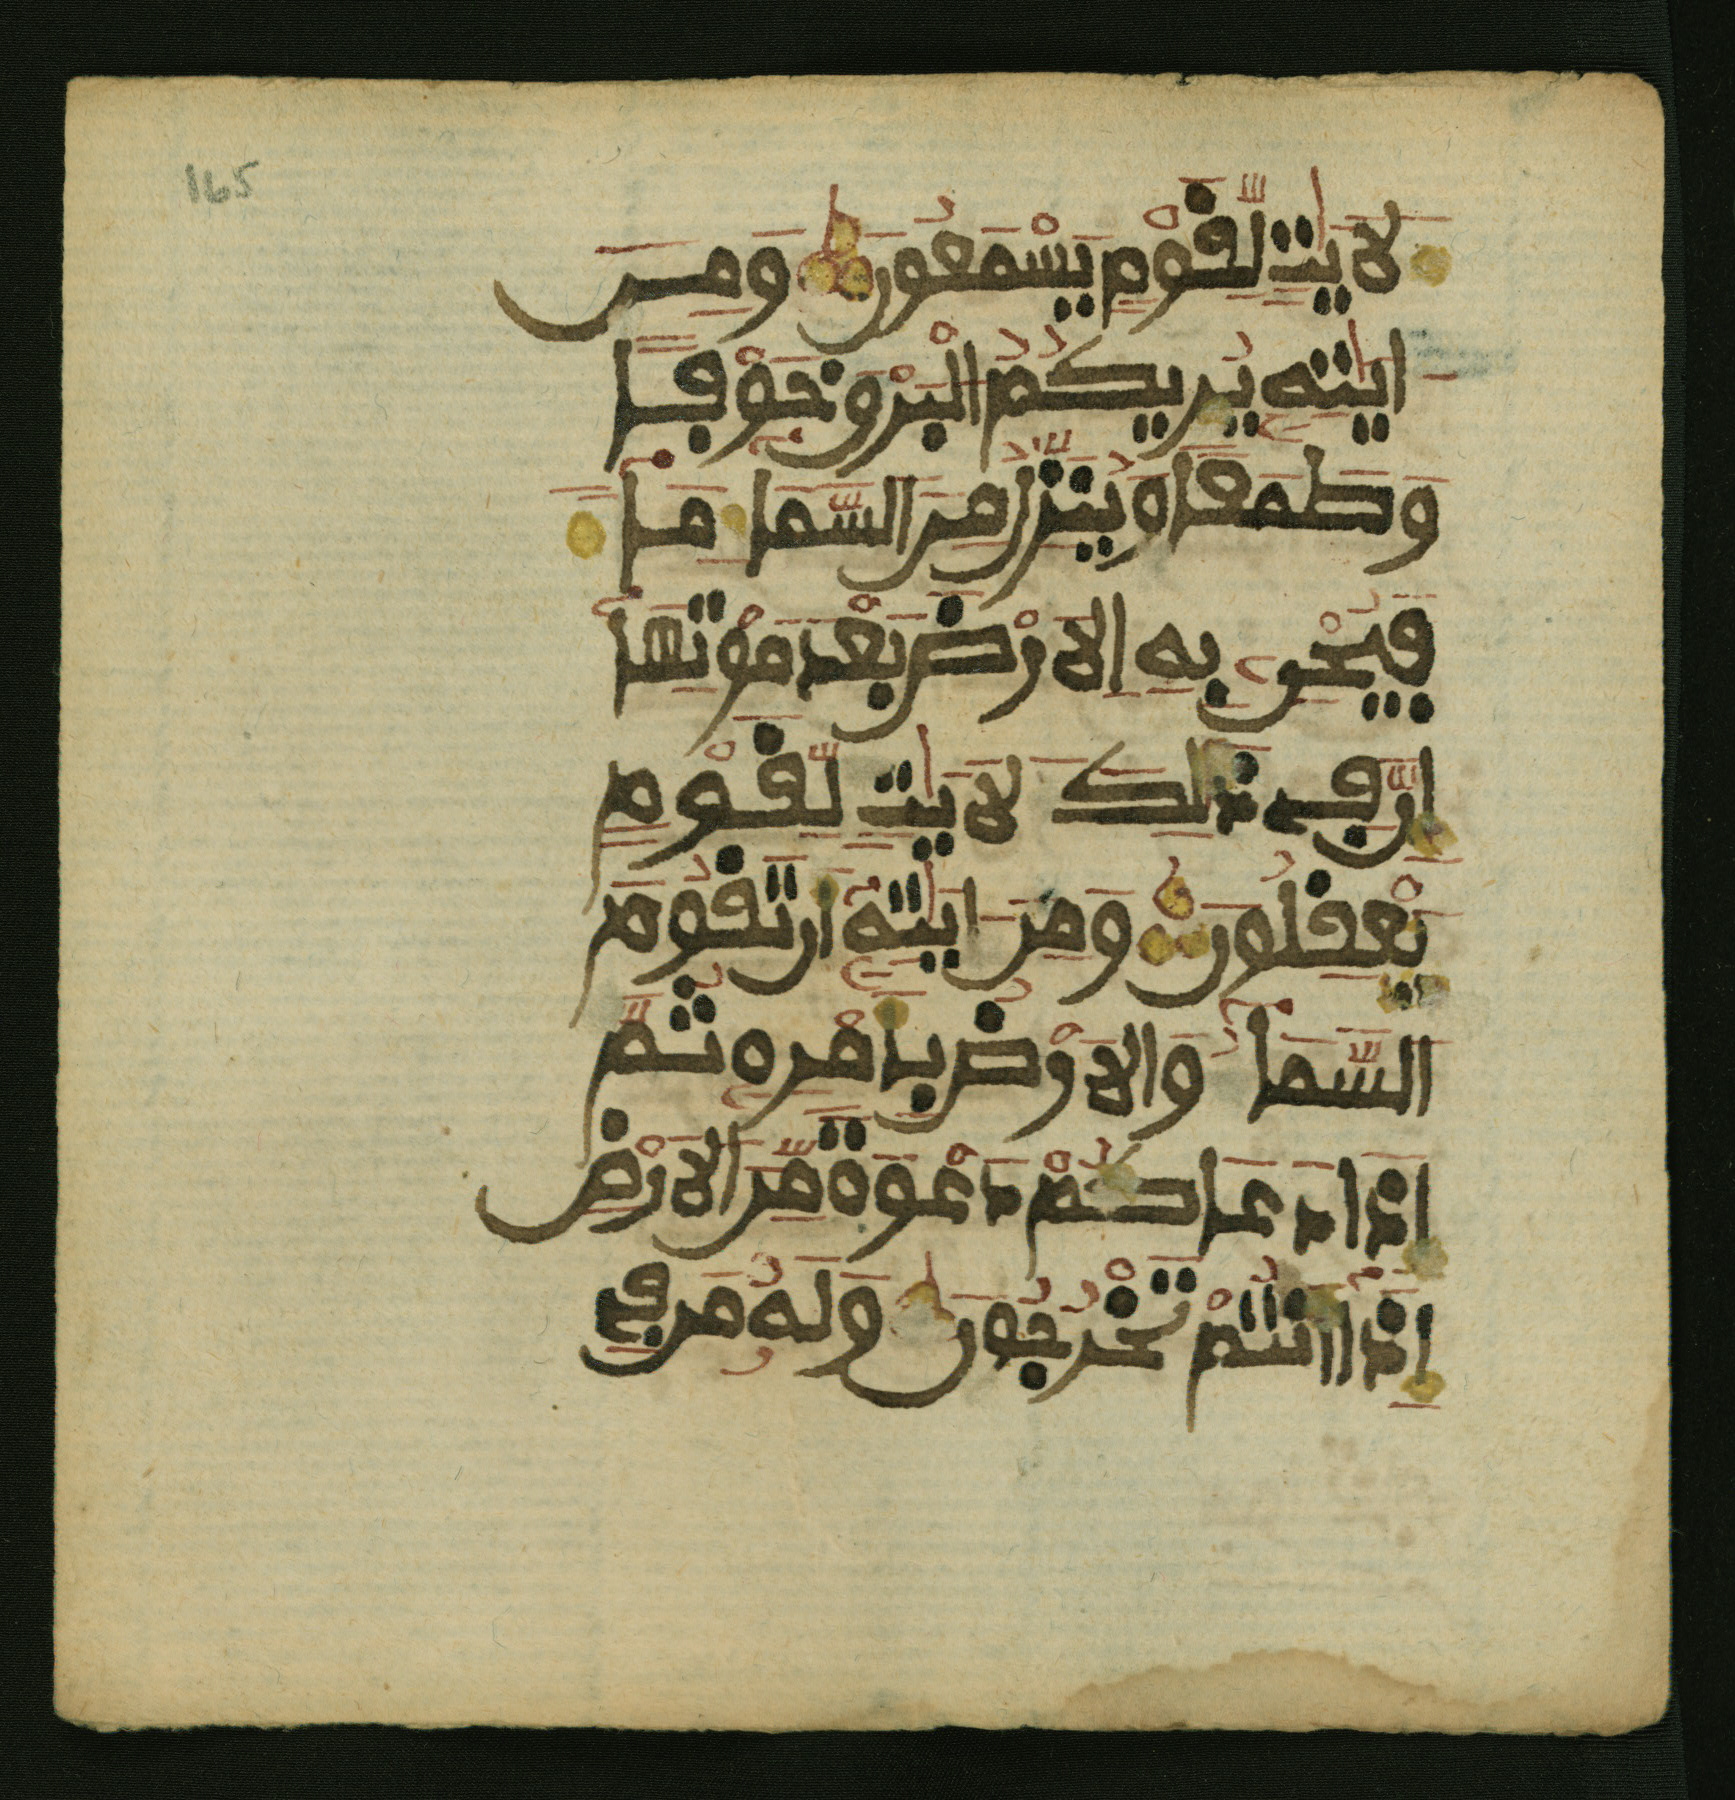 165
لَأَيَٰتٖ لِّقَوْمٖ يَسْمَعُونَ وَمِنَ
ايَٰتِهِۦ يُرِيكُمُ الْبَرْقَ خَوْفاٗ
وَطَمَعاٗ وَيُنَزِّلُ مِنَ السَّمَآءِ مَآءٗ
فَيُحْىِۦ بِهِ الَارْضَ بَعْدَ مَوْتِهَآ
إِنَّ فِى ذَٰلِكَ لَأَيَٰتٖ لِّقَوْمٖ
يَعْقِلُونَ وَمِنَ ايَٰتِهِۦٓ أَن تَقُومَ
السَّمَآءُ وَالَارْضُ بِأَمْرِهِۦ ثُمَّ
إِذَا دَعَاكُمْ دَعْوَةٗ مِّنَ الَارْضِ
إِذَآ أَنتُمْ تَخْرُجُونَ وَلَهُۥ مَن فِى